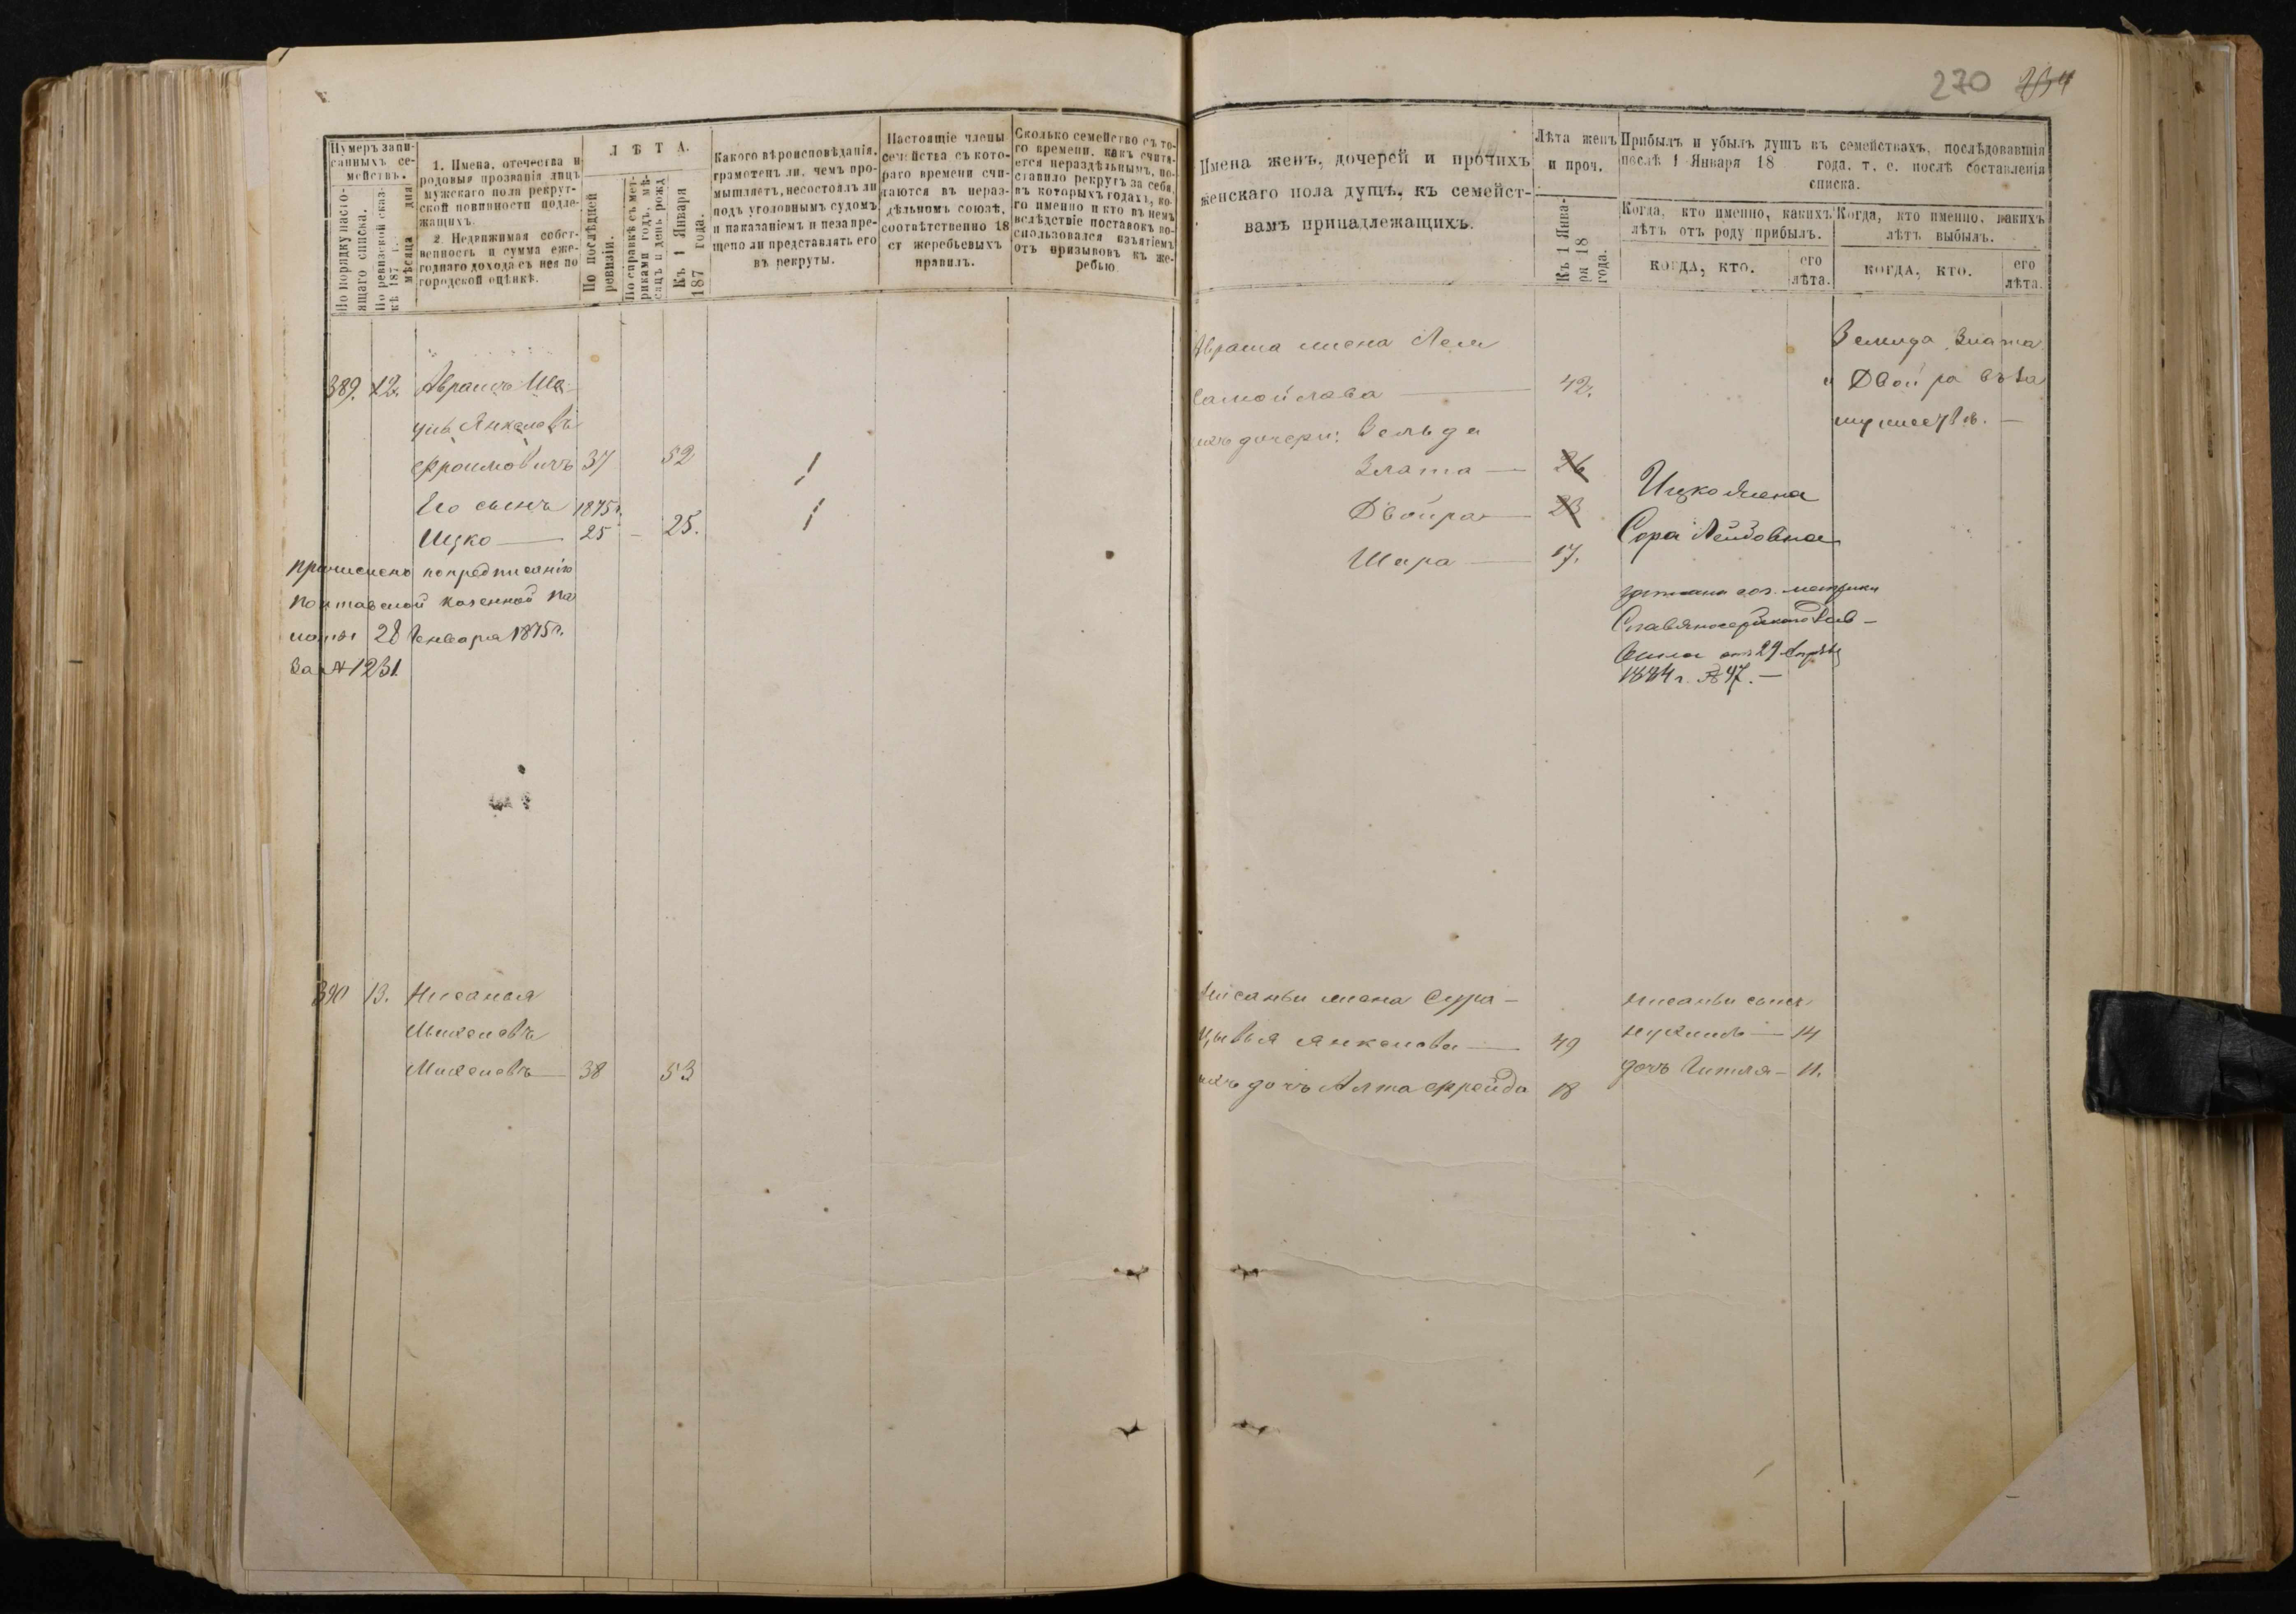 270 234
Нумеръ запи-
санныхъ се-
мействъ.
По порядку насто-
ящаго списка.
По ревизской сказ-
кѣ 187 г.
мѣсяца дня
1. Имена, отечества и
родовыя прозванія лицъ
мужскаго пола рекрут-
ской повинности подле-
жащихъ.
2. Недвижимая собст-
венность и сумма еже-
годнаго дохода съ нея по
городской оцѣнкѣ.
ЛѢТА.
По послѣдней
ревизіи.
По справкѣ съ мет-
риками годъ, мѣ-
сяцъ и день рожд
Къ 1 Января
187 года.
Какого вѣроисповѣданія,
грамотенъ ли, чемъ про-
мышляетъ, несостоялъ ли
подъ уголовнымъ судомъ
и наказаніемъ и незапре-
щено ли представлять его
въ рекруты.
Настоящіе члены
семейства съ кото-
раго времени счи-
таются въ нераз-
дѣльномъ союзѣ,
соотвѣтственно 18
ст жеребьевыхъ
правилъ.
Сколько семейство съ то-
го времени, какъ счита-
ется нераздѣльнымъ, по-
ставило рекрутъ за себя,
въ которыхъ годахъ, ко-
го именно и кто въ немъ
вслѣдствіе поставокъ во-
спользовался изъятіемъ
отъ призывовъ къ же-
ребью
389. 12. Абрамъ
Янкелевъ
Фроимовичъ 37 52
Его сынъ 1875г.
Ицко 25 25.
причисленъ по предписанію
Полтавской казенной Па
латы 28 Января 1875г.
За №1231
390 13. Нисанъ
Михелевъ
Михелевъ 38 53
Имена женъ, дочерей и прочихъ
женскаго пола душъ, къ семейст-
вамъ принадлежащихъ.
Лѣта женъ
и проч.
Къ 1 Янва-
ря 18
года.
Прибылъ и убылъ душъ въ семействахъ, послѣдовавшія
послѣ 1 Января 18 года, т. е. послѣ составленія
списка.
Когда, кто именно, какихъ
лѣтъ отъ роду прибылъ.
Когда, кто именно, какихъ
лѣтъ выбылъ.
КОГДА, КТО.
его
лѣта.
КОГДА, КТО.
его
лѣта.
Абрама жена Лея
Самойлова 42.
ихъ дочери: Зельда
Злата 26
Двойра 23
Шара 17.
Ицко жена
Сора
метрики
Славяносербскаго
29 Апрѣля
1884 г. № 47.
Зельда, Злата
и Двойра въ за
мужествѣ.
Нисанъи жена Сура-
Цывья Янкелева 49
ихъ дочь Алта Фрейда 18
Нисанъи сынъ
14
дочь Гитля - 11.